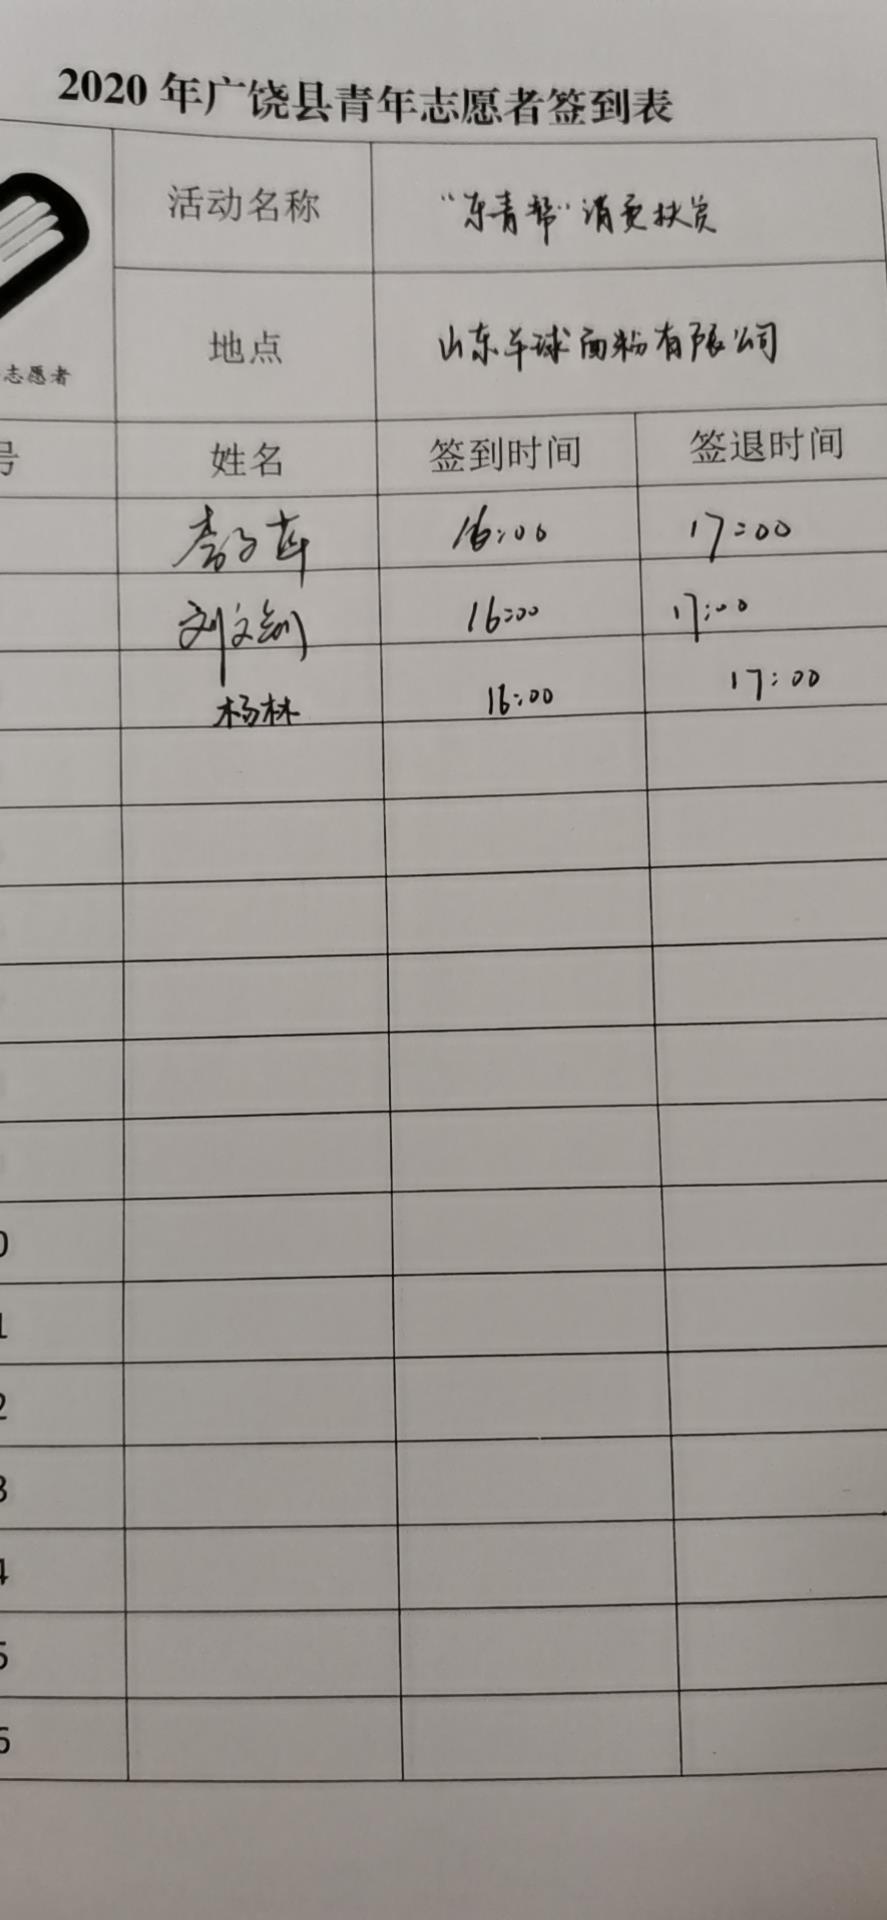 2020年广饶县青年志愿者签到表
活动名称 “东青帮”消费扶贫
地点 山东半球面粉有限公司
志愿者
号 姓名 签到时间 签退时间
16:00 17:00
刘文剑 16:00 17:00
杨林 16:00 17:00
0
1
2
3
4
5
6